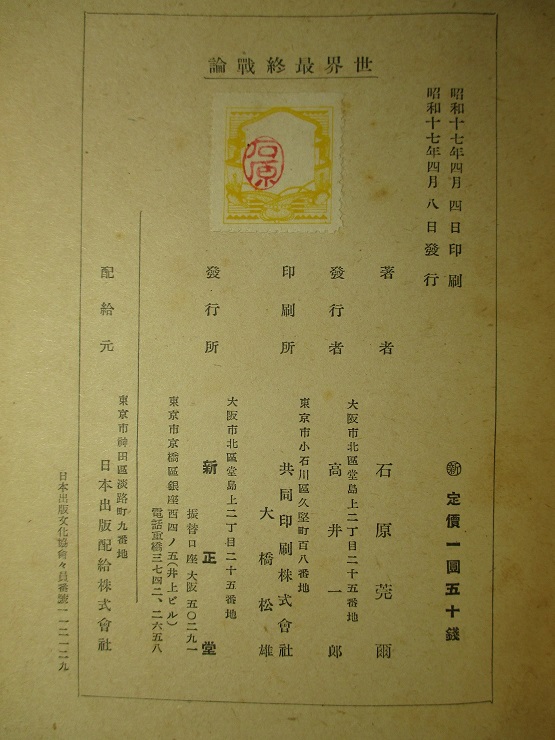 世界最終戰論
昭和十七年四月四日印刷
昭和十七年四月八日發行
㊟ 定價一圓五十錢
石原
著者 石原莞爾
大阪市北區堂島上二丁目二十五番地
發行者 高井一郎
東京市小石川區久堅町百八番地
印刷所 共同印刷株式會社
大橋松雄
大阪市北區堂島上二丁目二十五番地
發行所 新正堂
振替口座大阪五〇二九一
東京市京橋區銀座西四ノ五(井上ビル)
電話京橋三七四二、二六五八
東京市神田區淡路町九番地
配給元 日本出版配給株式會社
日本出版文化協會々員番號一一二一二九